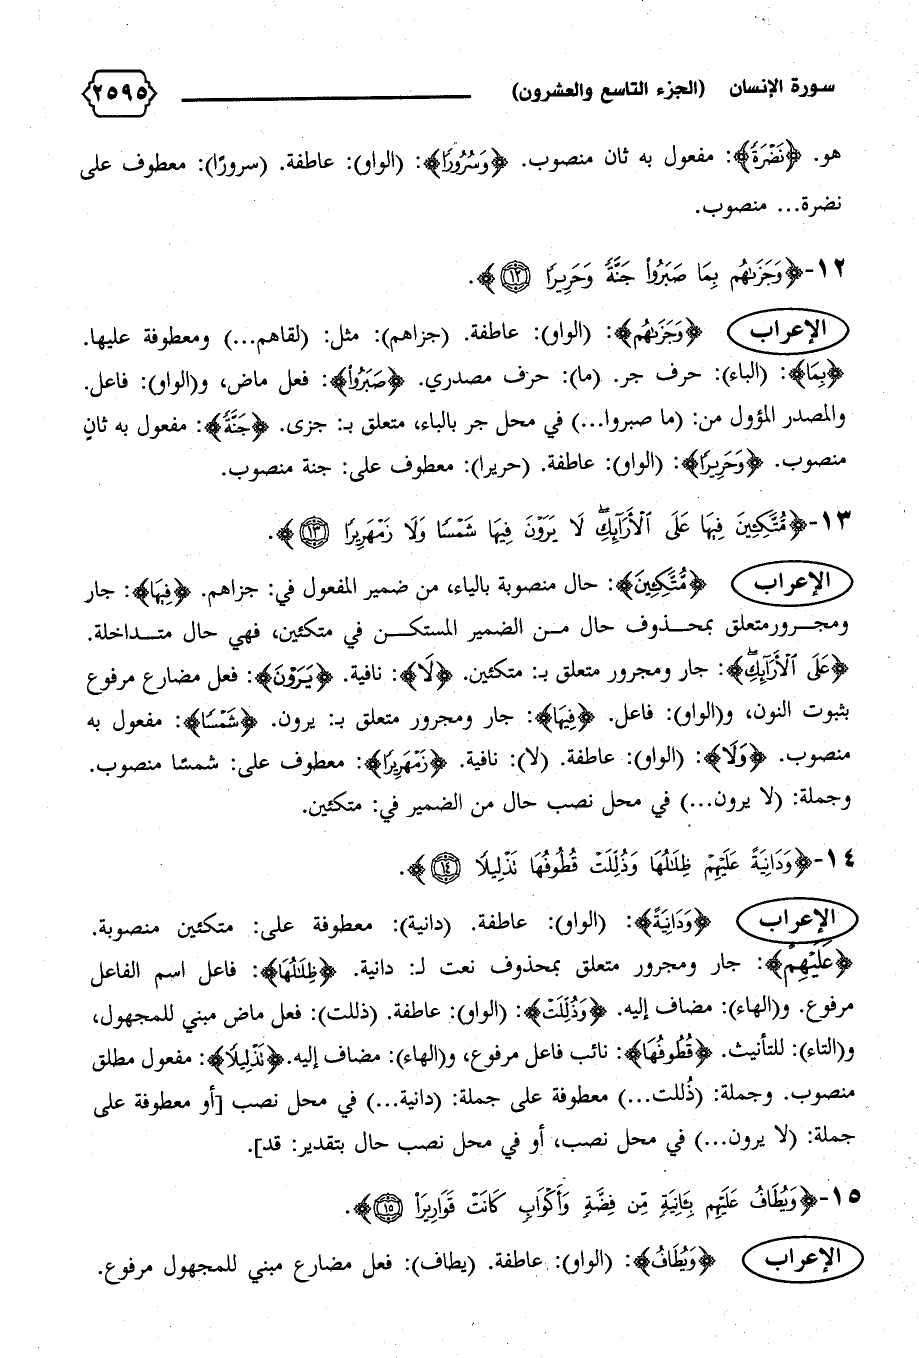 سورة الإنسان (الجزء التاسع والعشرون) ٢٥٩٥
هو. ﴿نَضْرَةً﴾: مفعول به ثان منصوب. ﴿وَسُرُورًا﴾: (الواو): عاطفة. (سرورًا): معطوف على
نضرة... منصوب.
١٢-﴿وَجَزَىٰهُم بِمَا صَبَرُوا۟ جَنَّةً وَحَرِيرًا ١٢﴾.
الإعراب ﴿وَجَزَىٰهُم﴾: (الواو): عاطفة. (جزاهم): مثل: (لقاهم...) ومعطوفة عليها.
﴿بِمَا﴾: (الباء): حرف جر. (ما): حرف مصدري. ﴿صَبَرُوا۟﴾: فعل ماض، و(الواو): فاعل.
والمصدر المؤول من: (ما صبروا...) في محل جر بالباء، متعلق بـ: جزى. ﴿جَنَّةً﴾: مفعول به ثانٍ
منصوب. ﴿وَحَرِيرًا﴾: (الواو): عاطفة. (حريرا): معطوف على: جنة منصوب.
١٣-﴿مُّتَّكِـِٔينَ فِيهَا عَلَى ٱلْأَرَآئِكِ ۖ لَا يَرَوْنَ فِيهَا شَمْسًا وَلَا زَمْهَرِيرًا ١٣﴾.
الإعراب ﴿مُّتَّكِـِٔينَ﴾: حال منصوبة بالياء، من ضمير المفعول في: جزاهم. ﴿فِيهَا﴾: جار
ومجرورمتعلق بمحذوف حال من الضمير المستكن في متكئين، فهي حال متداخلة.
﴿عَلَى ٱلْأَرَآئِكِ ۖ﴾: جار ومجرور متعلق بـ: متكئين. ﴿لَا﴾: نافية. ﴿يَرَوْنَ﴾: فعل مضارع مرفوع
بثبوت النون، و(الواو): فاعل. ﴿فِيهَا﴾: جار ومجرور متعلق بـ: يرون. ﴿شَمْسًا﴾: مفعول به
منصوب. ﴿وَلَا﴾: (الواو): عاطفة. (لا): نافية. ﴿زَمْهَرِيرًا﴾: معطوف على: شمسًا منصوب.
وجملة: (لا يرون...) في محل نصب حال من الضمير في: متكئين.
١٤-﴿وَدَانِيَةً عَلَيْهِمْ ظِلَـٰلُهَا وَذُلِّلَتْ قُطُوفُهَا تَذْلِيلًا ١٤﴾.
الإعراب ﴿وَدَانِيَةً﴾: (الواو): عاطفة. (دانية): معطوفة على: متكئين منصوبة.
﴿عَلَيْهِمْ﴾: جار ومجرور متعلق بمحذوف نعت لـ: دانية. ﴿ظِلَـٰلُهَا﴾: فاعل اسم الفاعل
مرفوع. و(الهاء): مضاف إليه. ﴿وَذُلِّلَتْ﴾: (الواو): عاطفة. (ذللت): فعل ماض مبني للمجهول،
و(التاء): للتأنيث. ﴿قُطُوفُهَا﴾: نائب فاعل مرفوع، و(الهاء): مضاف إليه. ﴿تَذْلِيلًا﴾: مفعول مطلق
منصوب. وجملة: (ذُللت...) معطوفة على جملة: (دانية...) في محل نصب [أو معطوفة على
جملة: (لا يرون...) في محل نصب، أو في محل نصب حال بتقدير: قد].
١٥-﴿وَيُطَافُ عَلَيْهِم بِـَٔانِيَةٍ مِّن فِضَّةٍ وَأَكْوَابٍ كَانَتْ قَوَارِيرَا۠ ١٥﴾.
الإعراب ﴿وَيُطَافُ﴾: (الواو): عاطفة. (يطاف): فعل مضارع مبني للمجهول مرفوع.